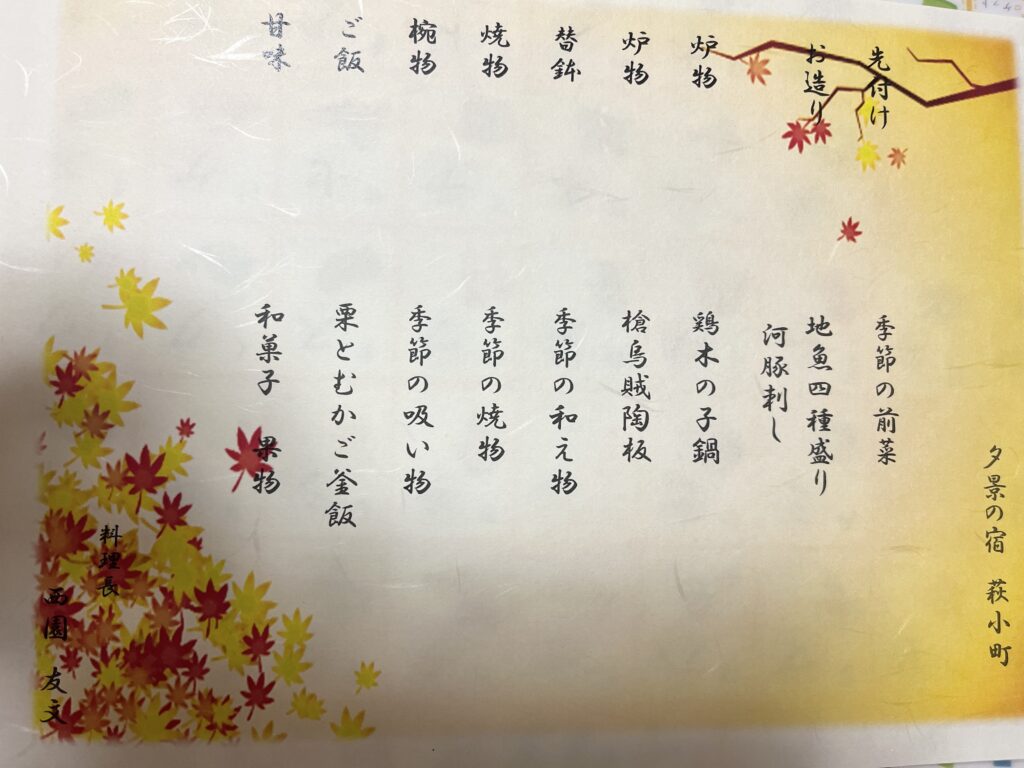 夕景の宿　萩小町
先付け　季節の前菜
お造り　地魚四種盛り
河豚刺し
炉物　鶏木の子鍋
炉物　槍烏賊陶板
替鉢　季節の和え物
焼物　季節の焼物
椀物　季節の吸い物
ご飯　栗とむかご釜飯
甘味　和菓子　果物
料理長
西園　友文